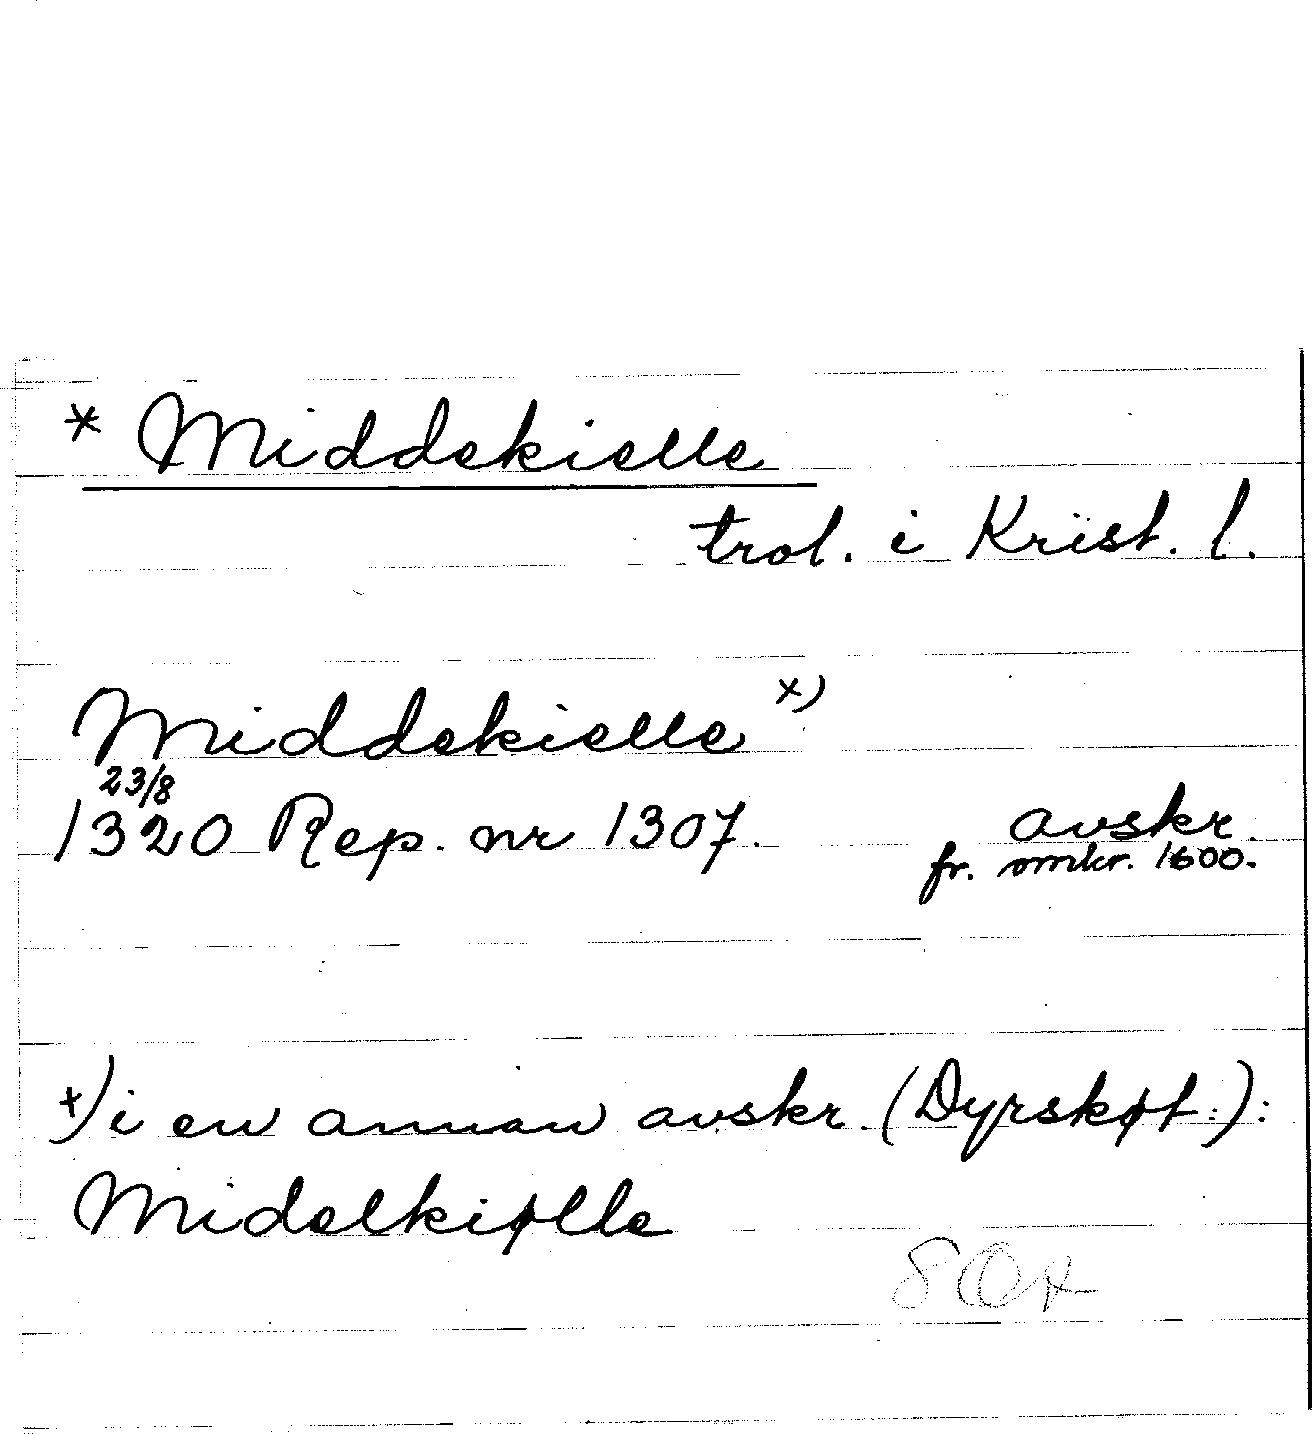 * Middekielle
trol. i Krist. l.
Middekielle x)
23/8
1320 Rep. nr 1307. avskr.
fr. omkr. 1600.
x) i en annan avskr. (Dyrskøt.):
Midelkiølle